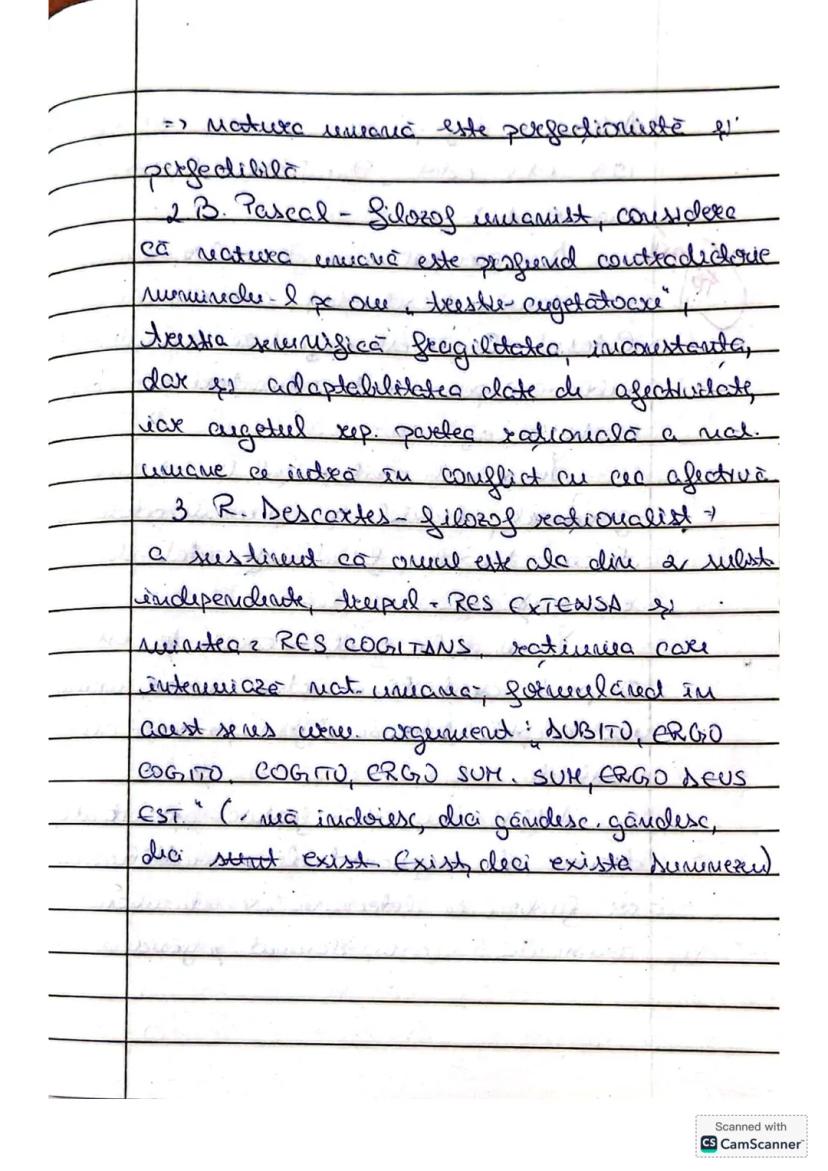 => natura umană este perfecționistă și
perfectibilă
2 B. Pascal - filozof umanist, considera
că natura umană este profund contradictorie
numindu-l pe om „trestie cugetătoare",
trestia semnifică fragilitatea, inconstanța,
dar și adaptabilitatea date de afectivitate,
iar cugetul rep. partea rațională a nat.
umane ce intră în conflict cu cea afectivă
3 R. Descartes - filozof rationalist =>
a susținut că omul este alc din 2 subst
independente, trupul = RES EXTENSA și
mintea = RES COGITANS, rațiunea care
întemeiază nat. umană, formulând în
acest sens urm. argument: „DUBITO, ERGO
COGITO. COGITO, ERGO SUM. SUM, ERGO DEUS
EST." (. mă indoiesc, deci gândesc. gândesc,
deci sunt exist. Exist, deci exista Dumnezeu)
Scanned with
CS CamScanner